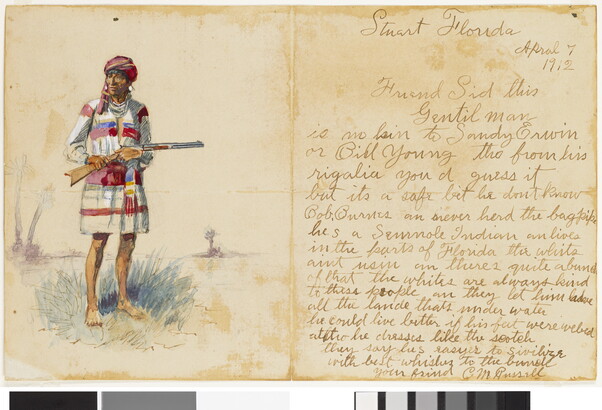 Stuart Florida
April 7
1912
Friend Sid this
Gentil man
is no kin to Sandy Erwin
or Bill Young tho from his
rigalia you d guess it
but its a safe bet he dont know
Bob Burnes an never herd the bagpipe
hes a Semnole Indian an lives
in the parts of Florida the whits
aint usin an theres quite a bunch
of that the whites are always kind
to these people an they let him have
all the lande thats under water
he could live better if his feet were webed
altho he dresses like the scotch
they say hes easyer to sivilize
with best whishes to the bunch
your friend C M Russell